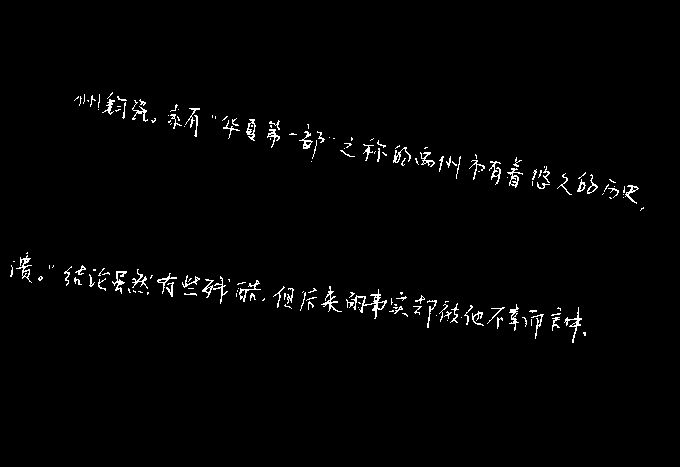 州钧瓷。素有“华夏第一都”之称的禹州市有着悠久的历史,
溃。”结论虽然有些残酷,但后来的事实却被他不幸而言中.